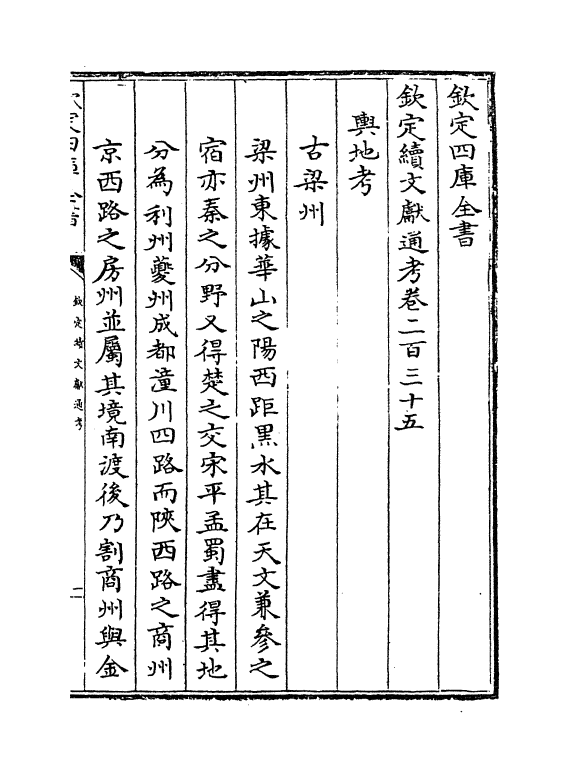 欽定四庫全書
欽定續文獻通考卷二百三十五
輿地考
古梁州
梁州東據華山之陽西距黑水其在天文兼參之
宿亦秦之分野又得楚之交宋平孟蜀盡得其地
分為利州夔州成都潼川四路而陝西路之商州
京西路之房州並屬其境南渡後乃割商州與金
欽定四庫全書
欽定續文獻通考